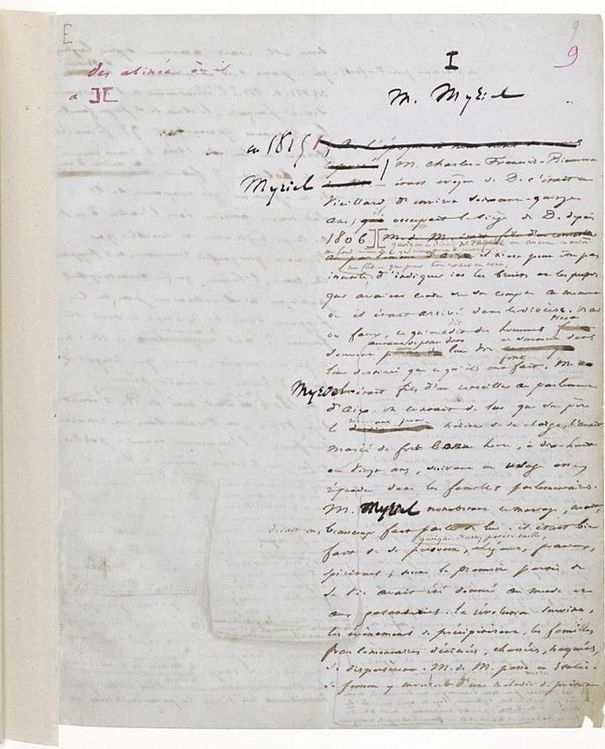 9
9
des alinéa
à ][
I
M. Myriel
en 1815
M. Charles-François-Bienvenu
Myriel — était évêque de D. c'était un
vieillard d'environ soixante-quinze
ans; occupait le siège de D. depuis
1806 ][
quoique ce détail ne touche en aucune manière
il n'est peut-être pas
inutile d'indiquer ici les bruits et les propos
qui avaient couru sur son compte au moment
où il était arrivé dans le diocèse. Vrai
ou faux, ce qu'on dit des hommes tient
souvent autant de place dans
leur destinée que ce qu'ils font. M.
Myriel était fils d'un conseiller au parlement
d'Aix. On contait de lui que son père
le réservant pour hériter de sa charge, l'avait
marié de fort bonne heure, à dix-huit
ou vingt ans, suivant un usage assez
répandu dans les familles parlementaires.
M. Myriel nonobstant ce mariage, avait,
disait-on, beaucoup fait parler de lui. il était bien
quoique d'assez petite taille,
fait de sa personne, élégant, gracieux,
spirituel; toute la première partie de
sa vie avait été donnée au monde et
aux galanteries. la révolution survint,
les événements se précipitèrent, les familles
parlementaires décimées, chassées, traquées,
se dispersèrent. M. de M. passa en Italie.
sa femme y mourut d'une maladie de poitrine